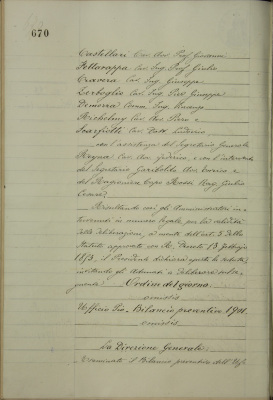 670
Castellari Cav. Avv. Prof. Giovanni
Pettarappa Cav. Ing. Prof. Giulio
Cravera Cav. Ing. Giuseppe
Cerboglio Cav. Ing. Giuseppe
Demorra Comm. Ing.
Cav. Avv. Piero e
Scarfiotti Cav. Dott. Ludovico
con l'assistenza del Segretario Generale
Cav. Avv. e con l'intervento
del Segretario Garibaldi Avv. Enrico e
del Ragioniere Capo Rossi Rag. Giulio
Cesare
Risultando così gli Amministratori in-
tervenuti in numero legale per la validità
delle deliberazioni, a mente dell'art. 5 dello
Statuto approvato con R. Decreto 13 Febbraio
1853, il Presidente dichiara aperta la seduta,
invitando gli Adunati a deliberare sul se-
guente: Ordine del giorno.
omissis
Ufficio Pio - Bilancio preventivo 1901.
omissis
La Direzione Generale,
Esaminato il Bilancio preventivo dell'Uff.